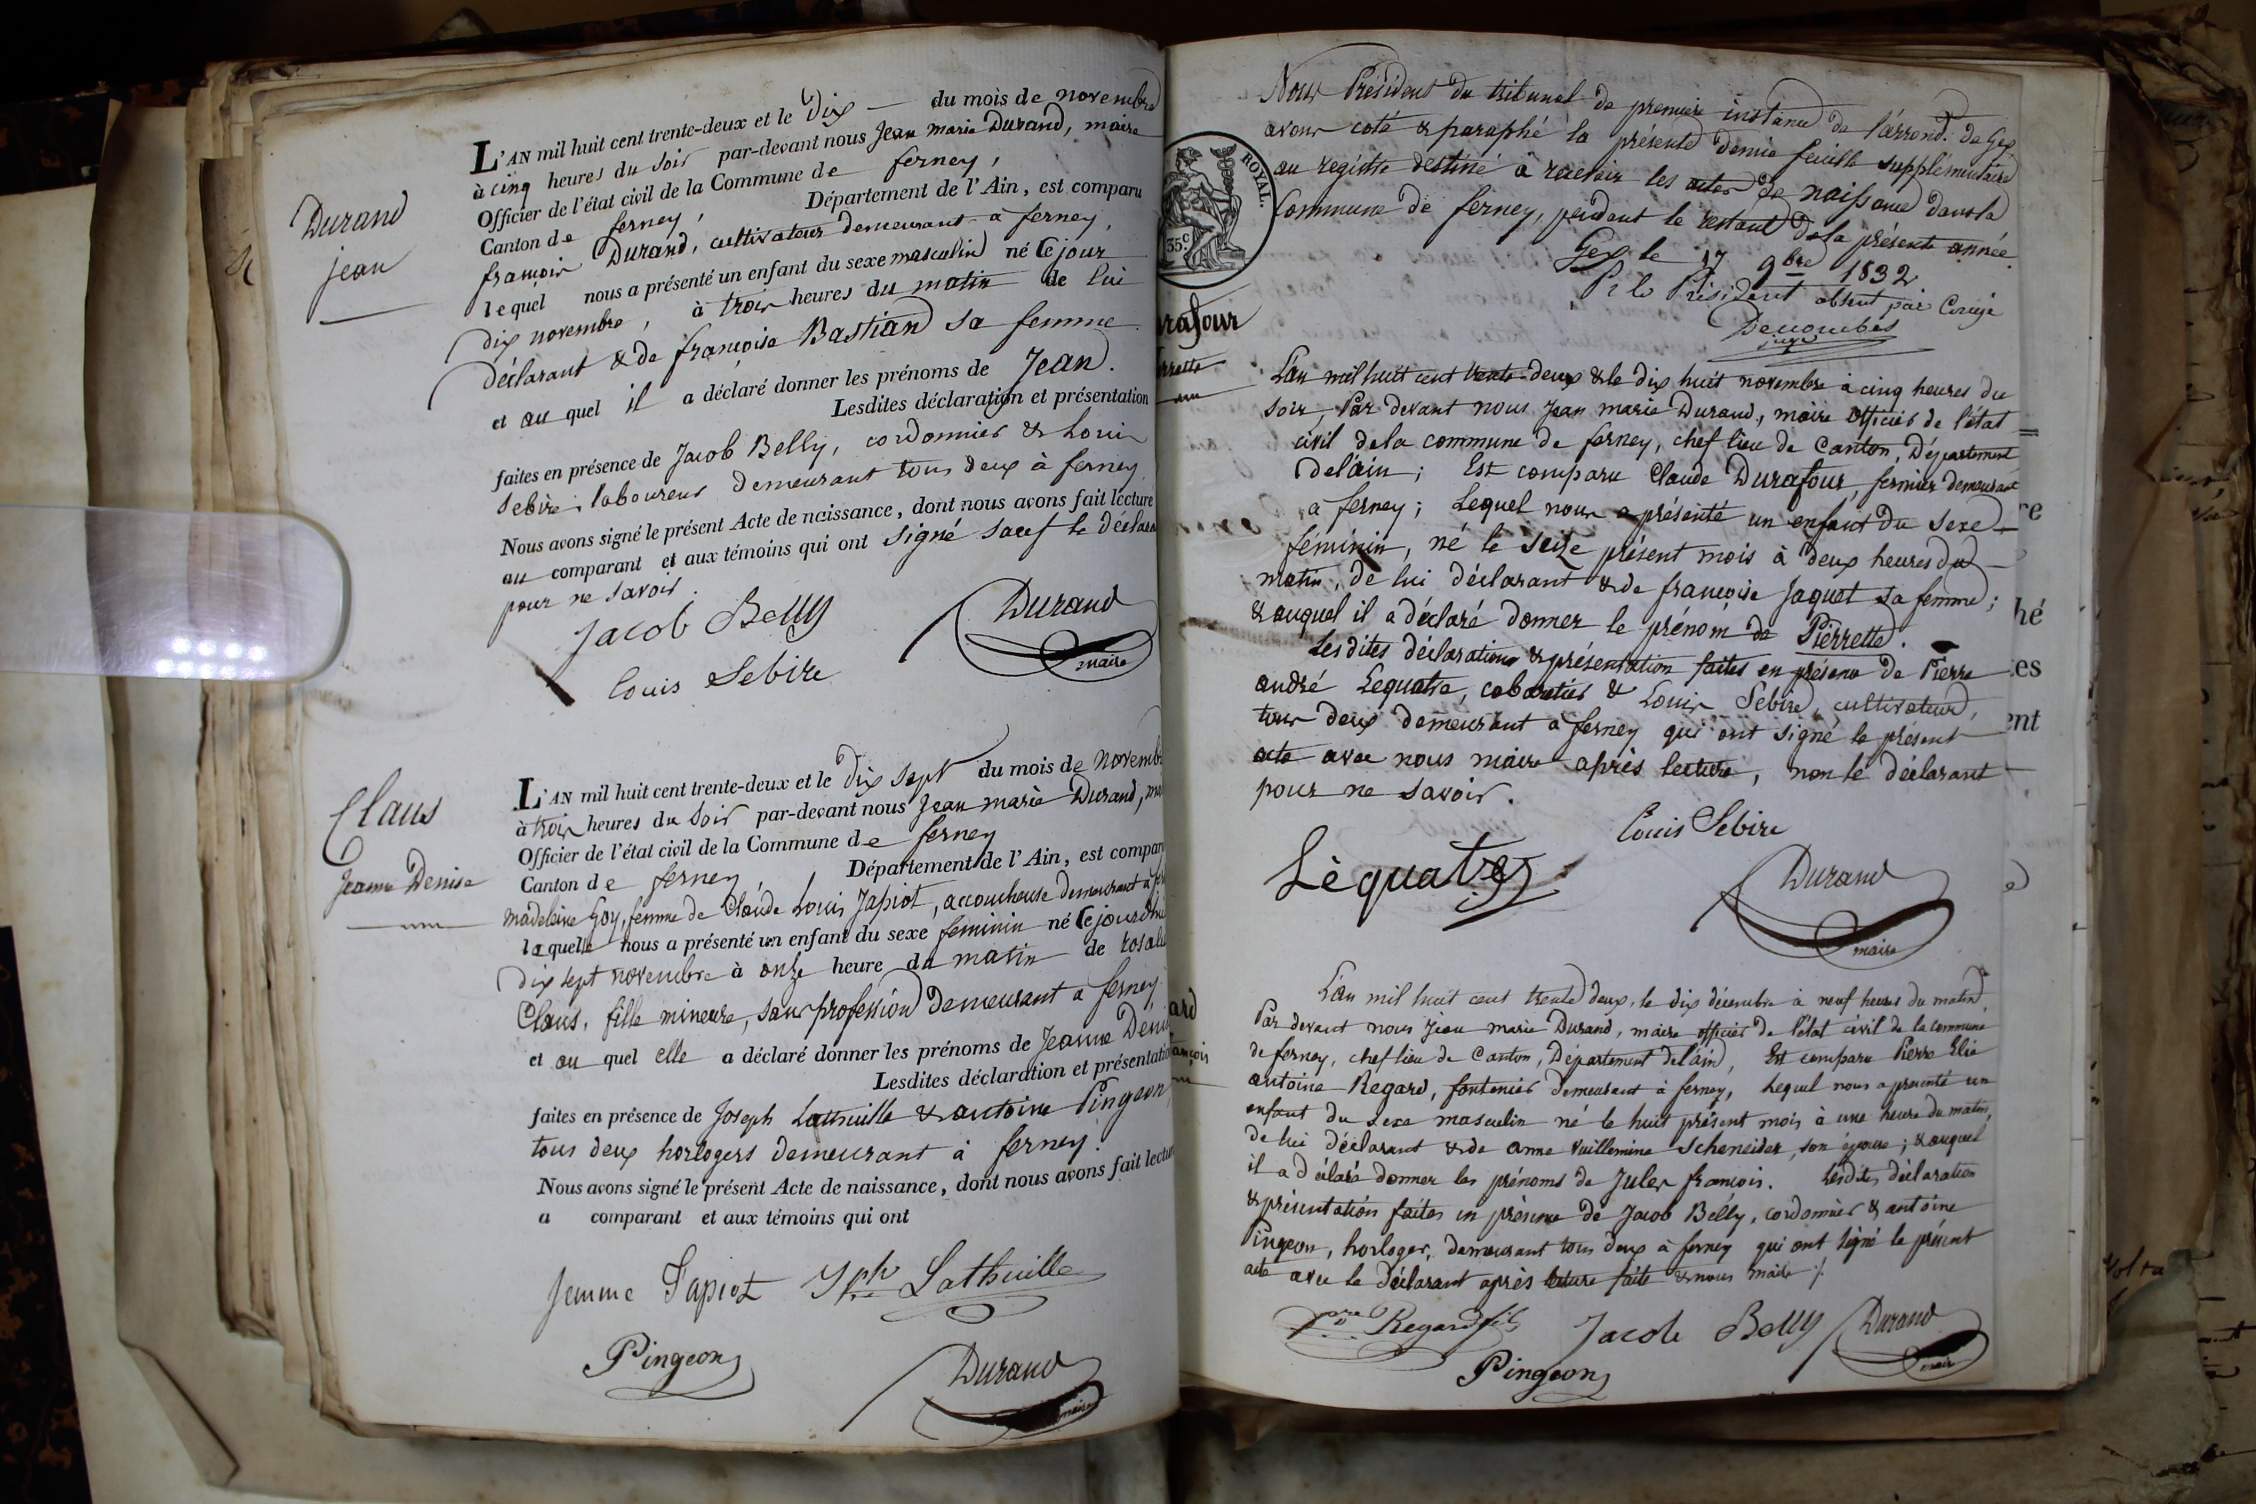 Durand
jean
L'AN mil huit cent trente-deux et le Dix du mois de novembre
à cinq heures du soir par-devant nous Jean marie Durand, maire
Officier de l'état civil de la Commune de ferney,
Canton de ferney, Département de l'Ain, est comparu
françois Durand, cultivateur demeurant à ferney,
lequel nous a présenté un enfant du sexe masculin né Cejour
dix novembre, à trois heures du matin de lui
déclarant & de françoise Bastian sa femme
et au quel il a déclaré donner les prénoms de Jean.
Lesdites déclaration et présentation
faites en présence de Jacob Belly, cordonnier & Louis
Sebire, laboureur demeurant tous deux à ferney
Nous avons signé le présent Acte de naissance, dont nous avons fait lecture
au comparant et aux témoins qui ont signé sauf le déclara
pour ne savoir.
Jacob Belly
Durand
maire
Louis Sebire
Claus
Jeanne Denise
L'AN mil huit cent trente-deux et le Dix sept du mois de Novemb
à trois heures du soir par-devant nous Jean marie Durand, ma
Officier de l'état civil de la Commune de ferney
Canton de ferney, Département de l'Ain, est compar
madelaine Goy, femme de Claude Louis Japiot, accoucheuse demeurant à fer
laquelle nous a présenté un enfant du sexe feminin né Cejourdhui
dix sept novembre à onze heure du matin de rosali
Claus, fille mineure, sans profession demeurant a ferney
et au quel elle a déclaré donner les prénoms de Jeanne Deni
Lesdites déclaration et présentatio
faites en présence de Joseph Lathuille & antoine Pingeon,
tous deux horlogers demeurant à ferney.
Nous avons signé le présent Acte de naissance, dont nous avons fait lectu
a comparant et aux témoins qui ont
femme Japiot Jph Lathuille
Pingeon
Durand
maire
Nous Président du tribunal de premiere instance de l'arrond. de Gex
avons coté & paraphé la présente demie feuille supplémentaire
au registre destiné à recevoir les actes de naissance dans la
Commune de ferney, pendant le restant de la présente année.
Gex le 17 9bre 1832
Pr le Président absent par Congé
juge
ROYAL.
35c
rafour
rrette
L'an mil huit cent trente-deux & le dix huit novembre à cinq heures du
soir, Par devant nous Jean marie Durand, maire officier de l'état
civil dela commune de ferney, chef lieu de Canton, Département
Del'ain; Est comparu Claude Durafour, fermier demeurant
a ferney; Lequel nous a présenté un enfant du sexe
féminin, né le seize présent mois à deux heures du
matin, de lui déclarant & de françoise Jaquet sa femme;
& auquel il a déclaré donner le prénom de Pierrette.
Lesdites déclaration & présentation faites en présence de Pierre
andré Lequatre, cabaretier & Louis Sebire, cultivateur,
tous deux demeurant a ferney qui ont signé le présent
acte avec nous maire après lecture, non le déclarant
pour ne savoir.
Louis Sebire
Lèquatre
Durand
maire
ard
ançois
L'an mil huit cent trente deux, le dix décembre à neuf heures du matin
Par devant nous Jean marie Durand, maire officier de l'état civil de la commune
de ferney, chef lieu de Canton, Département del'ain, Est comparu Pierre Elie
antoine Regard, fontenier demeurant à ferney, Lequel nous a présenté un
enfant du sexe masculin né le huit présent mois à une heure du matin,
de lui déclarant & de anne Vuillemine Scheneider, son épouse; & auquel
il a déclaré donner les prénoms de Jules françois. Lesdites déclaration
& présentation faites en présence de Jacob Belly, cordonnier & antoine
Pingeon, horloger, demeurant tous deux à ferney qui ont signé le présent
acte avec le déclarant après lecture faite & nous maire
Regard fils Jacob Belly Durand
maire
Pingeon
re
hé
es
ent